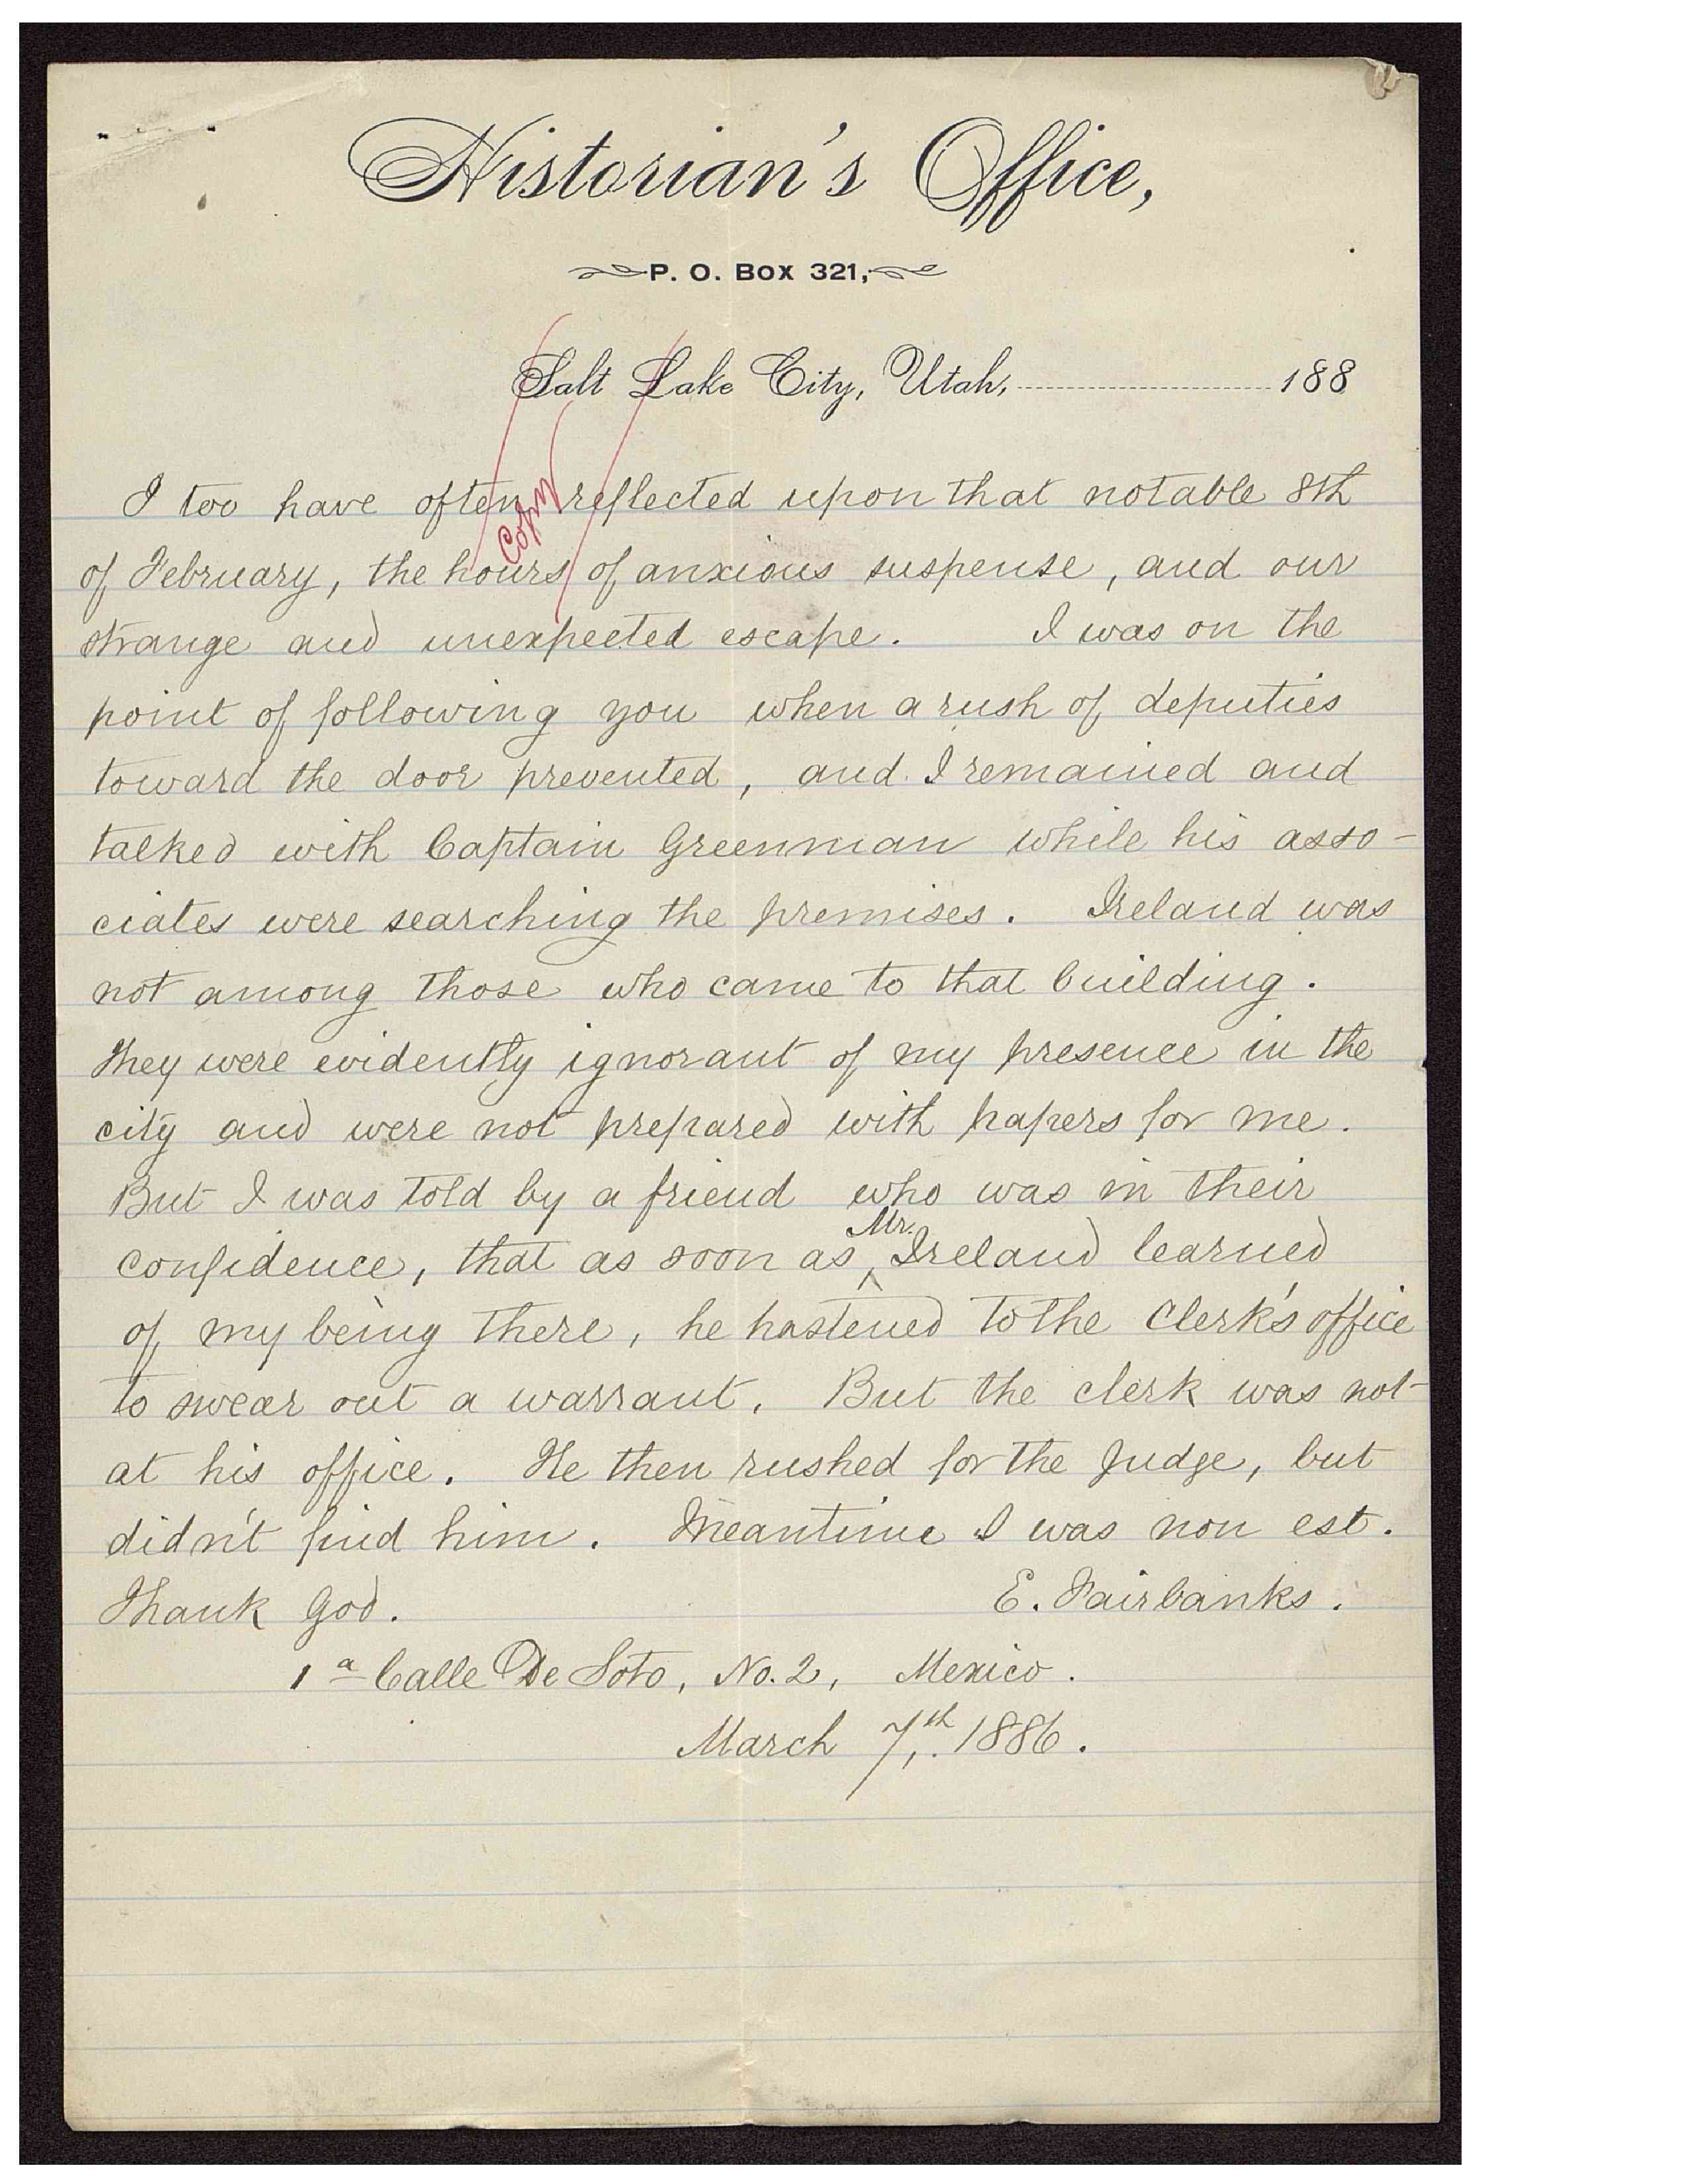 Historian's Office,
P. O. BOX 321,
Salt Lake City, Utah, 188
Copy
I too have often reflected upon that notable 8th
of February, the hours of anxious suspense, and our
strange and unexpected escape. I was on the
point of following you when a rush of deputies
toward the door prevented, and I remained and
talked with Captain Greenman while his asso-
ciates were searching the premises. Ireland was
not among those who came to that building.
They were evidently ignorant of my presence in the
city and were not prepared with papers for me.
But I was told by a friend who was in their
confidence, that as soon as Mr. Ireland learned
of my being there, he hastened to the clerk's office
to swear out a warrant. But the clerk was not
at his office. He then rushed for the Judge, but
didn't find him. Meantime I was non est.
Thank God. E. Fairbanks.
1a Calle De Soto, No. 2, Mexico.
March 7th, 1886.